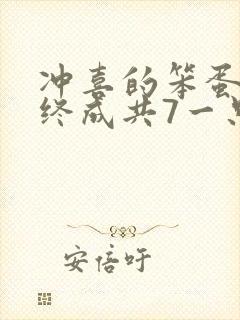 冲喜的笨蛋
终成共7一
安倍吁